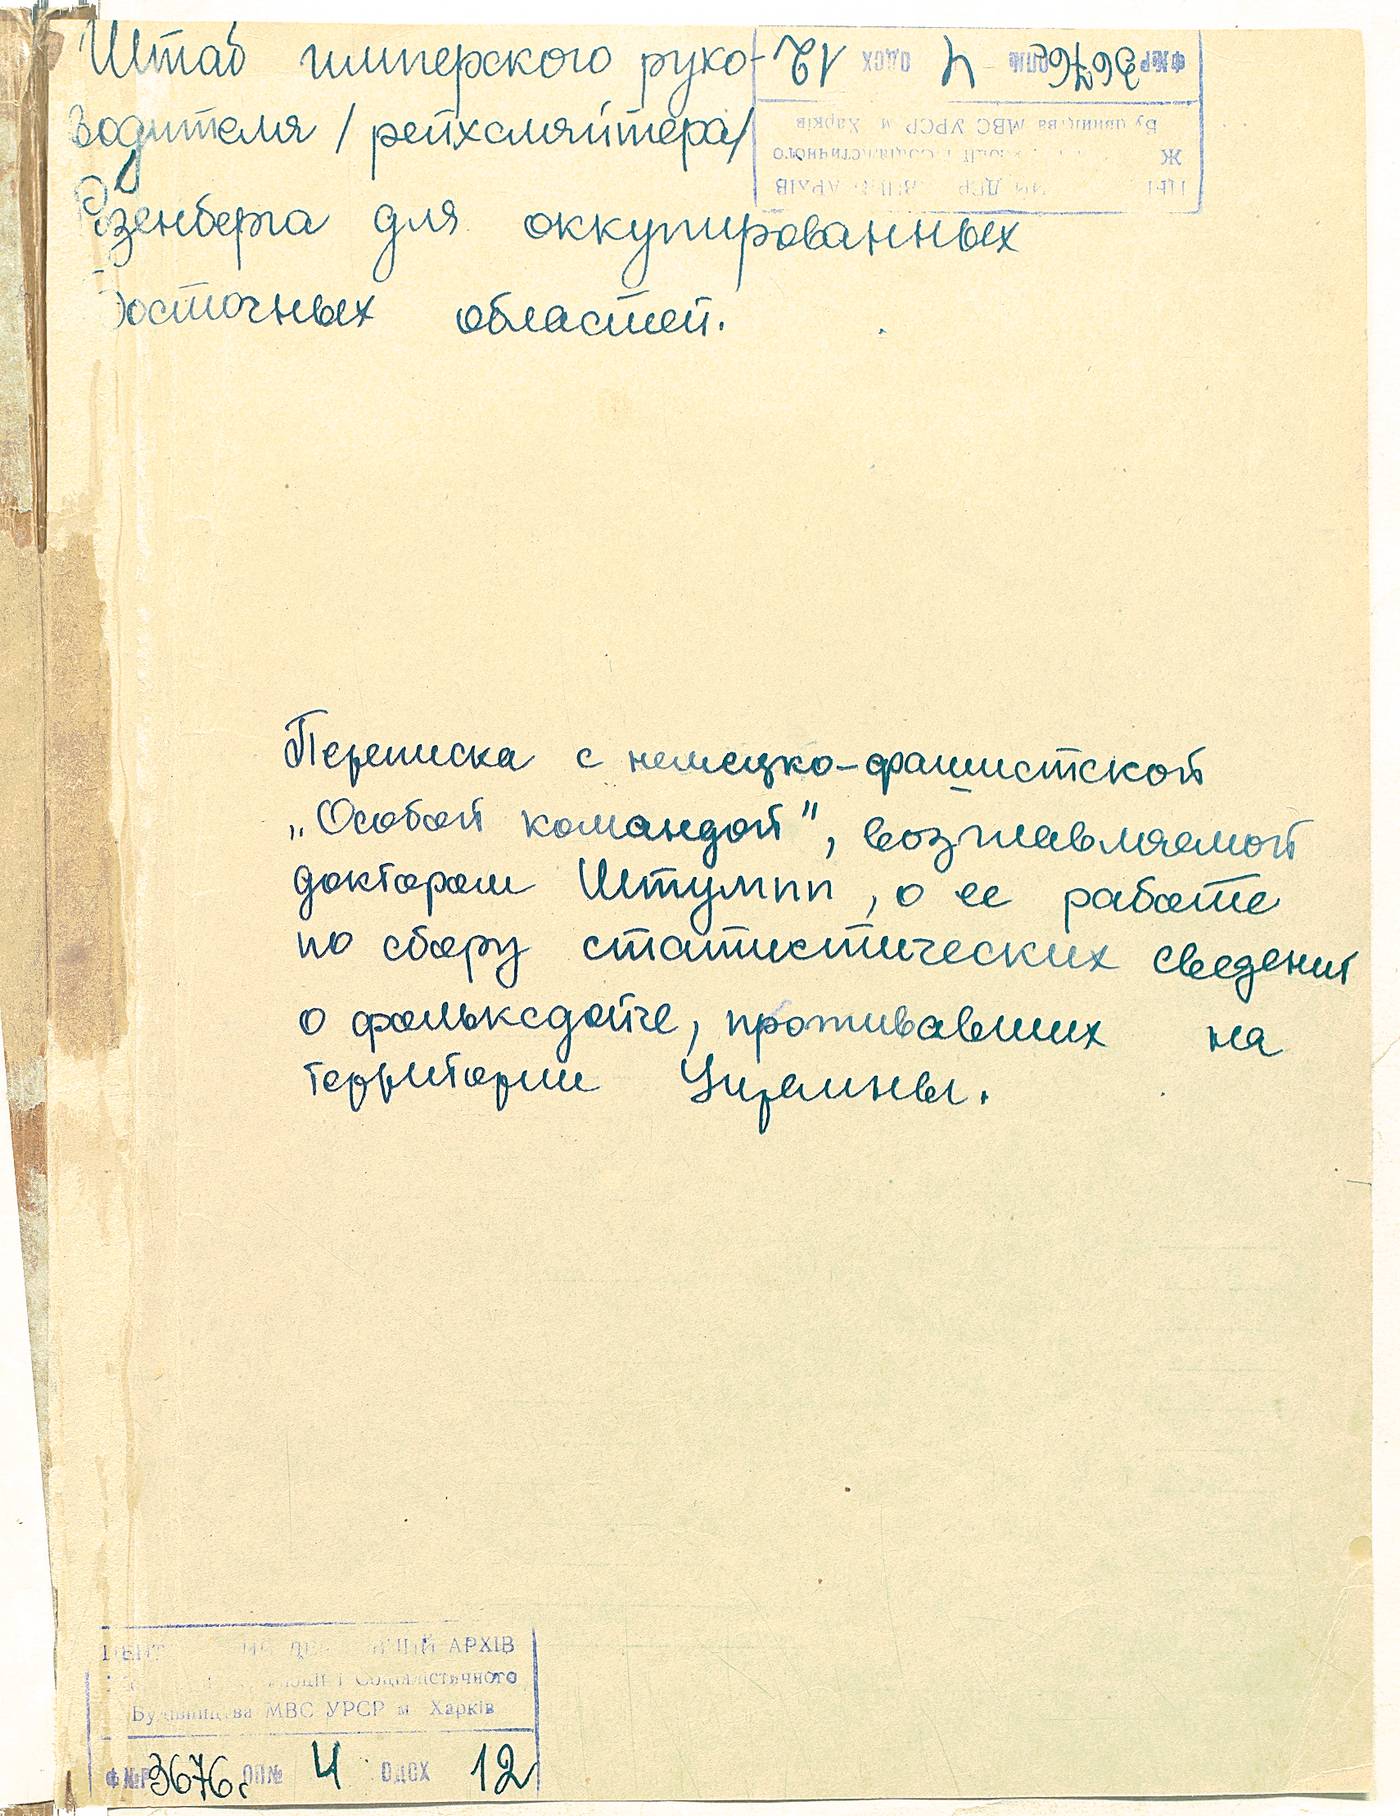 Штаб имперского руко-
водителя /рейхсляйтера/
Розенберга для оккупированных
восточных областей.
Ф№Р 3676с ОП№ 4 ОДСХ 12
Будівництва МВС УРСР м Харків
Соціалістичного
АРХІВ
Переписка с немецко-фашистской
„Особой командой", возглавляемой
доктором Штумпп, о ее работе
по сбору статистических сведений
о фольксдойче, проживавших на
территории Украины.
АРХІВ
і Соціалістичного
Будівництва МВС УРСР м Харків
Ф№Р 3676с ОП№ 4 ОДСХ 12